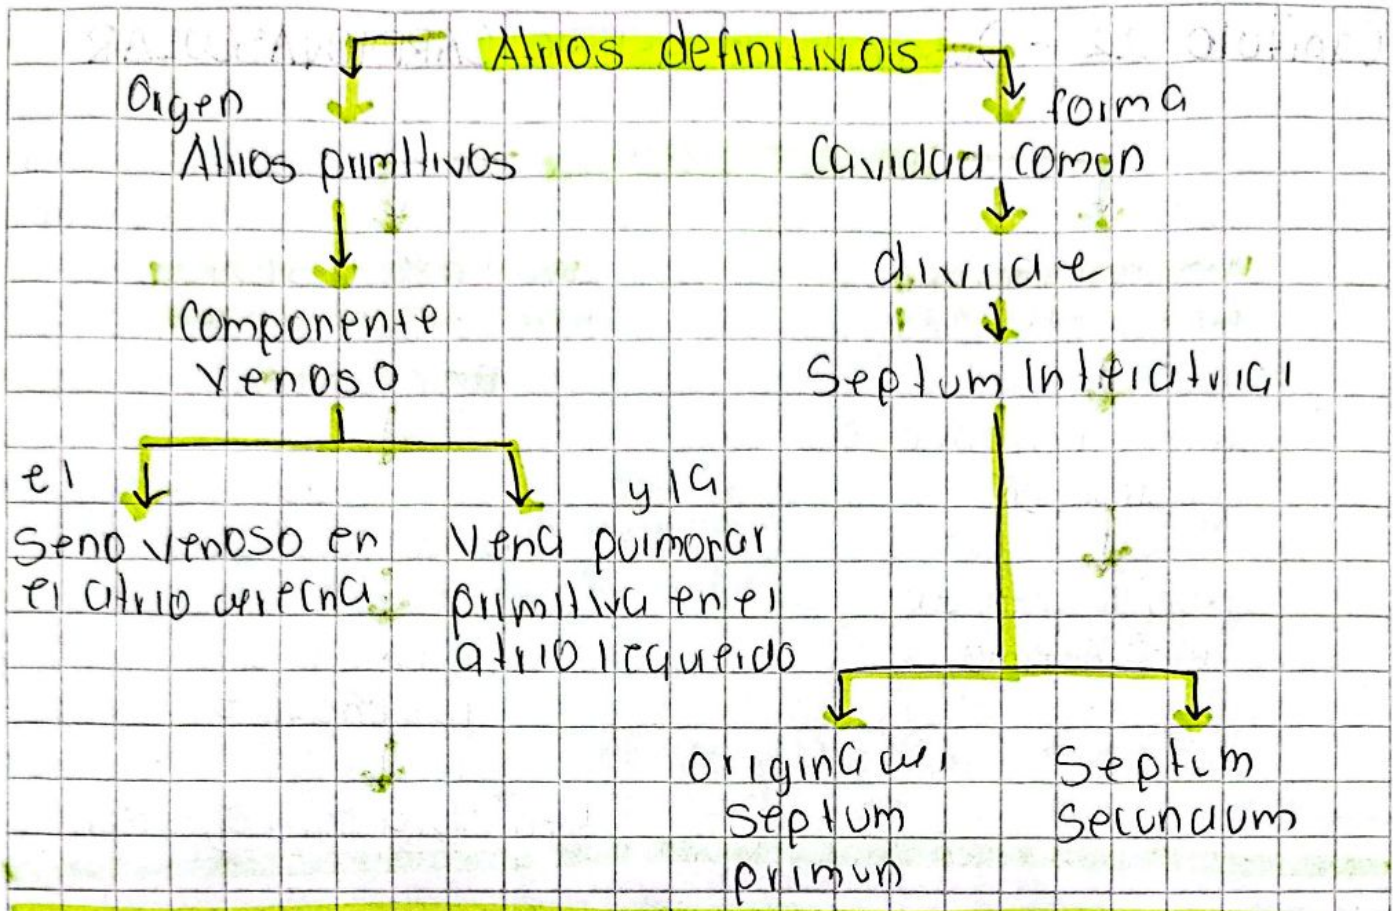 Atrios definitivos
Origen
Atrios primitivos
Componente
venoso
el
Seno venoso en
el atrio derecha
y la
Vena pulmonar
primitiva en el
atrio izquerido
forma
Cavidad comun
divide
Septum Interatrial
origina del
septum
primun
Septum
secundum